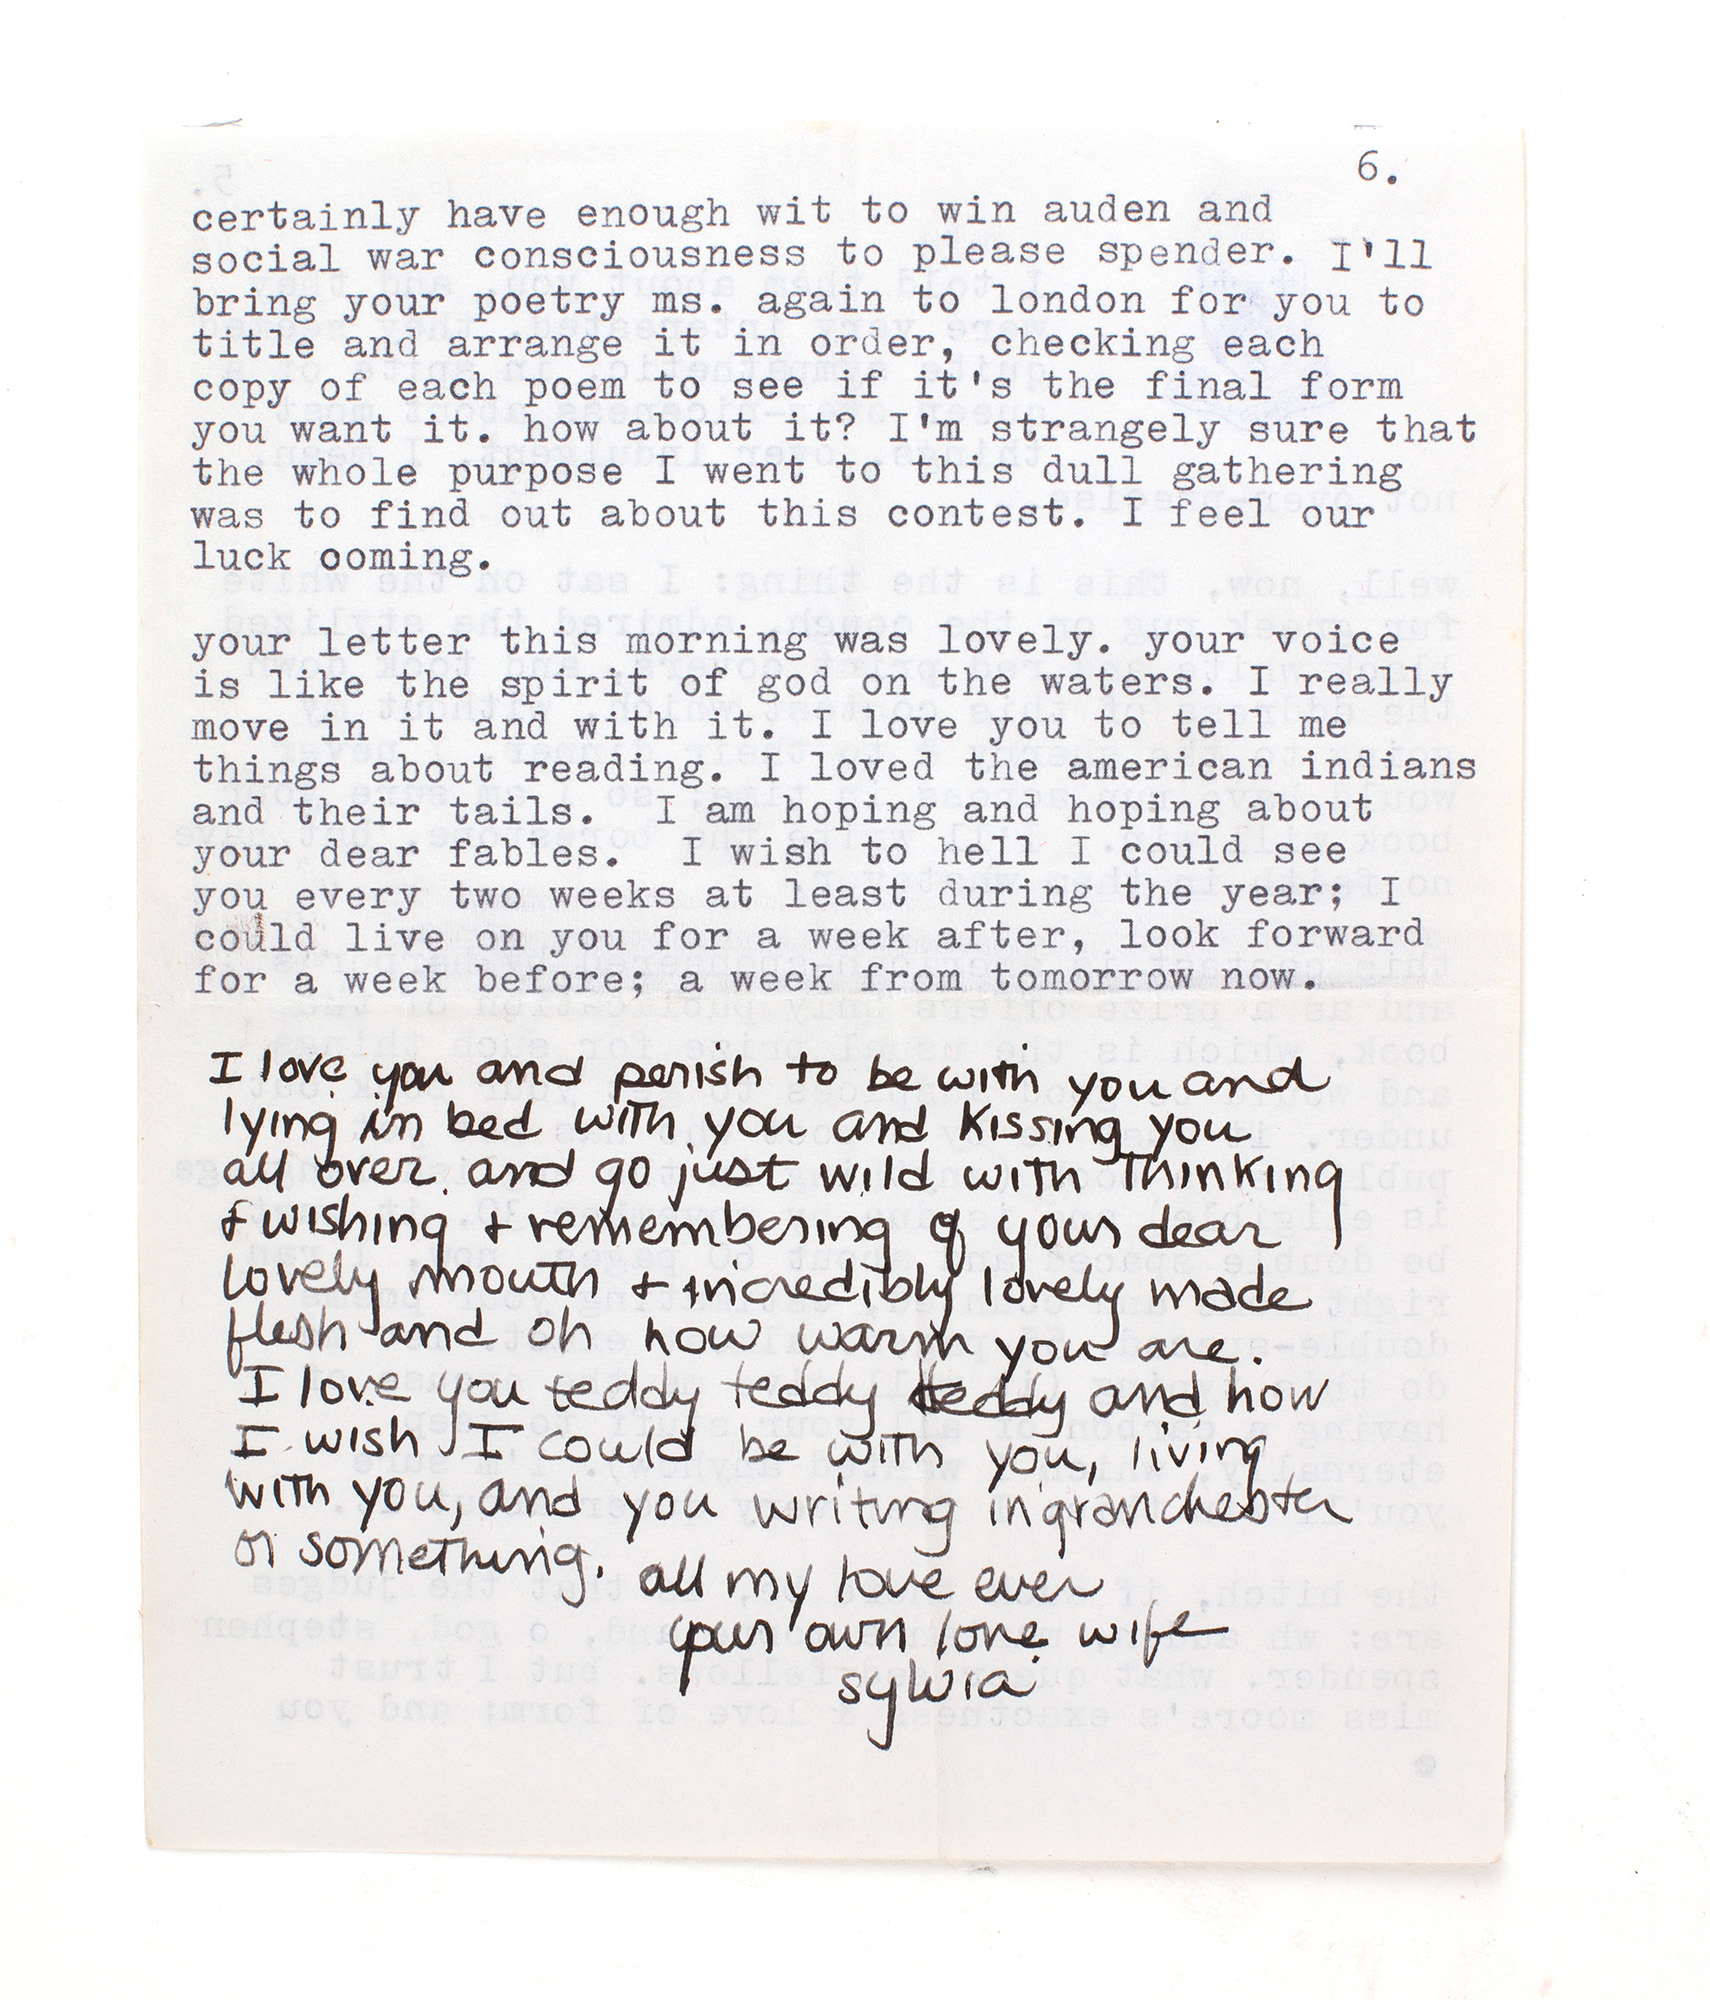 6.
certainly have enough wit to win auden and
social war consciousness to please spender. I'll
bring your poetry ms. again to london for you to
title and arrange it in order, checking each
copy of each poem to see if it's the final form
you want it. how about it? I'm strangely sure that
the whole purpose I went to this dull gathering
was to find out about this contest. I feel our
luck coming.
your letter this morning was lovely. your voice
is like the spirit of god on the waters. I really
move in it and with it. I love you to tell me
things about reading. I loved the american indians
and their tails.  I am hoping and hoping about
your dear fables.  I wish to hell I could see
you every two weeks at least during the year; I
could live on you for a week after, look forward
for a week before; a week from tomorrow now.
I love you and perish to be with you and
lying in bed with you and kissing you
all over and go just wild with thinking
& wishing & remembering of your dear
lovely mouth & incredibly lovely made
flesh and oh how warm you are.
I love you teddy teddy teddy and how
I wish I could be with you, living
with you, and you writing in granchester
or something. all my love ever
your own love wife
sylvia